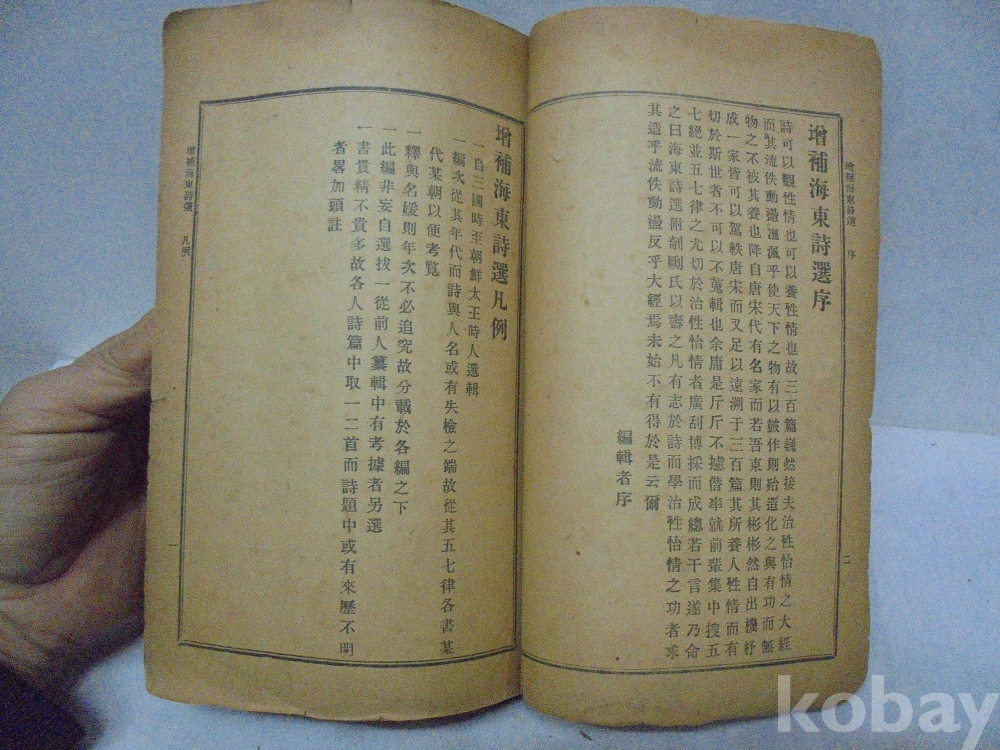 增補海東詩選 序
增補海東詩選序
詩可以觀性情也可以養性情也故三百篇巍然接夫治性怡情之大經
而其流佚動盪渢渢乎使天下之物有以皷作則殆造化之與有功而無
物之不被其養也降自唐宋代有名家而若吾東則其彬彬然自出機杼
成一家皆可以駕軼唐宋而又足以遠溯于三百篇其所養人性情而有
切於斯世者不可以不蒐輯也余庸是斤斤不揓僭率就前輩集中搜五
七絕並五七律之尤切於治性怡情者廣刮博採而成總若干言遂乃命
之曰海東詩選附剞劂氏以壽之凡有志於詩而學治性怡情之功者求
其造乎流佚動盪反乎大經焉未始不有得於是云爾
編輯者序
二
增補海東詩選凡例
一自三國時至朝鮮太王時人選輯
一編次從其年代而詩與人名或有失檢之端故從其五七律各書某
代某朝以便考覧
一釋與名媛則年次不必追究故分載於各編之下
一此編非妄自選拔一從前人纂輯中有考據者另選
一書貴精不貴多故各人詩篇中取一二首而詩題中或有來歷不明
者畧加頭註
增補海東詩選 凡例
一
kobay